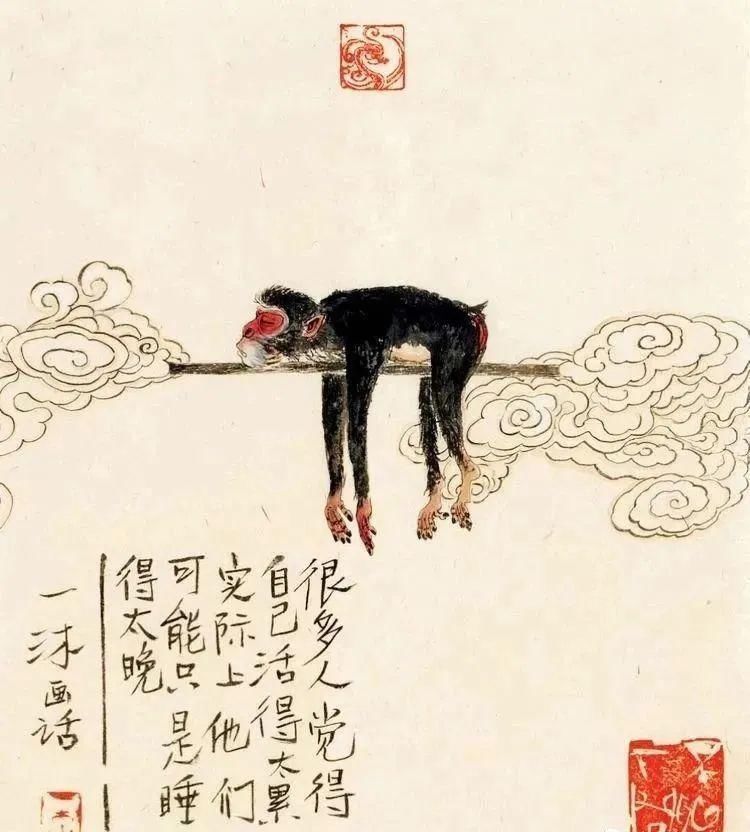 很多人觉得
自己活得太累
实际上他们
可能只是睡
得太晚
一沐画话